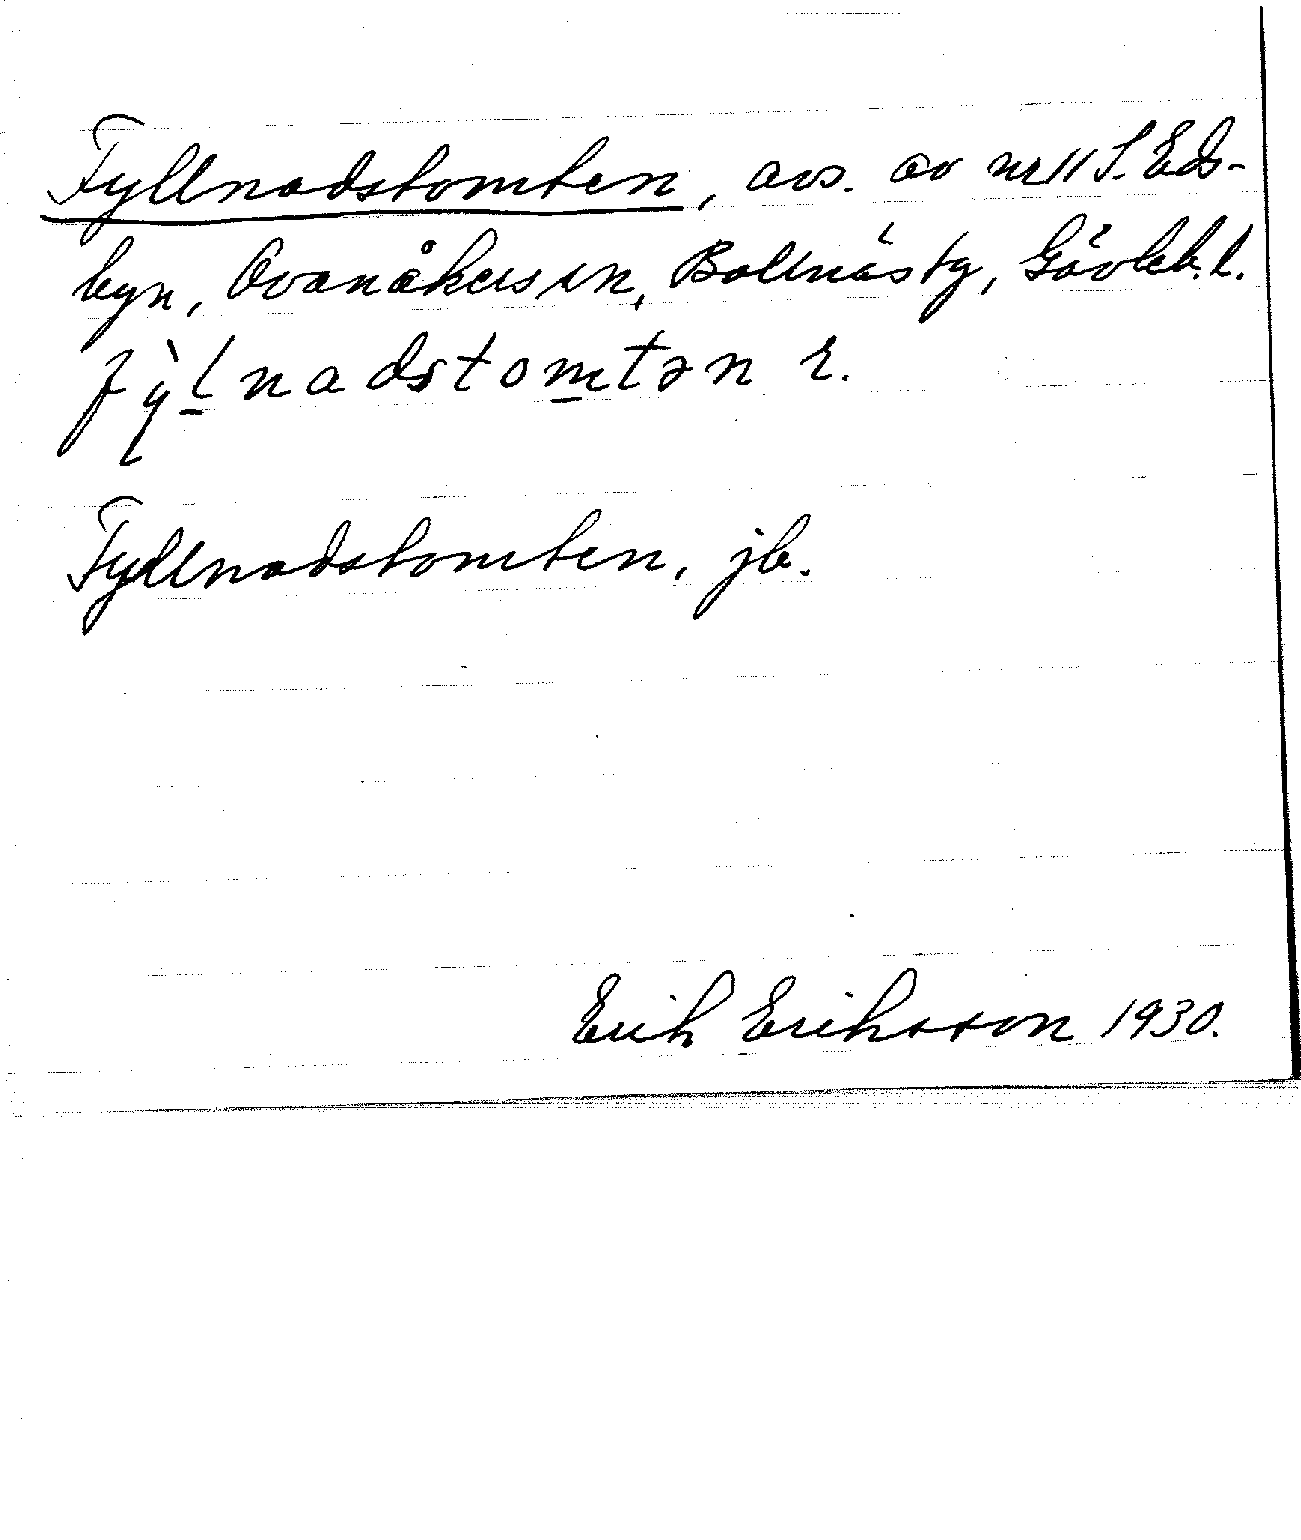 Fyllnadstomten, avs. av nr 11 S. Eds-
byn, Ovanåkers sn, Bollnäs tg, Gävleb. l.
fỳl̲nadstom̲tən r.
Fyllnadstomten, jb.
Erik Eriksson 1930.